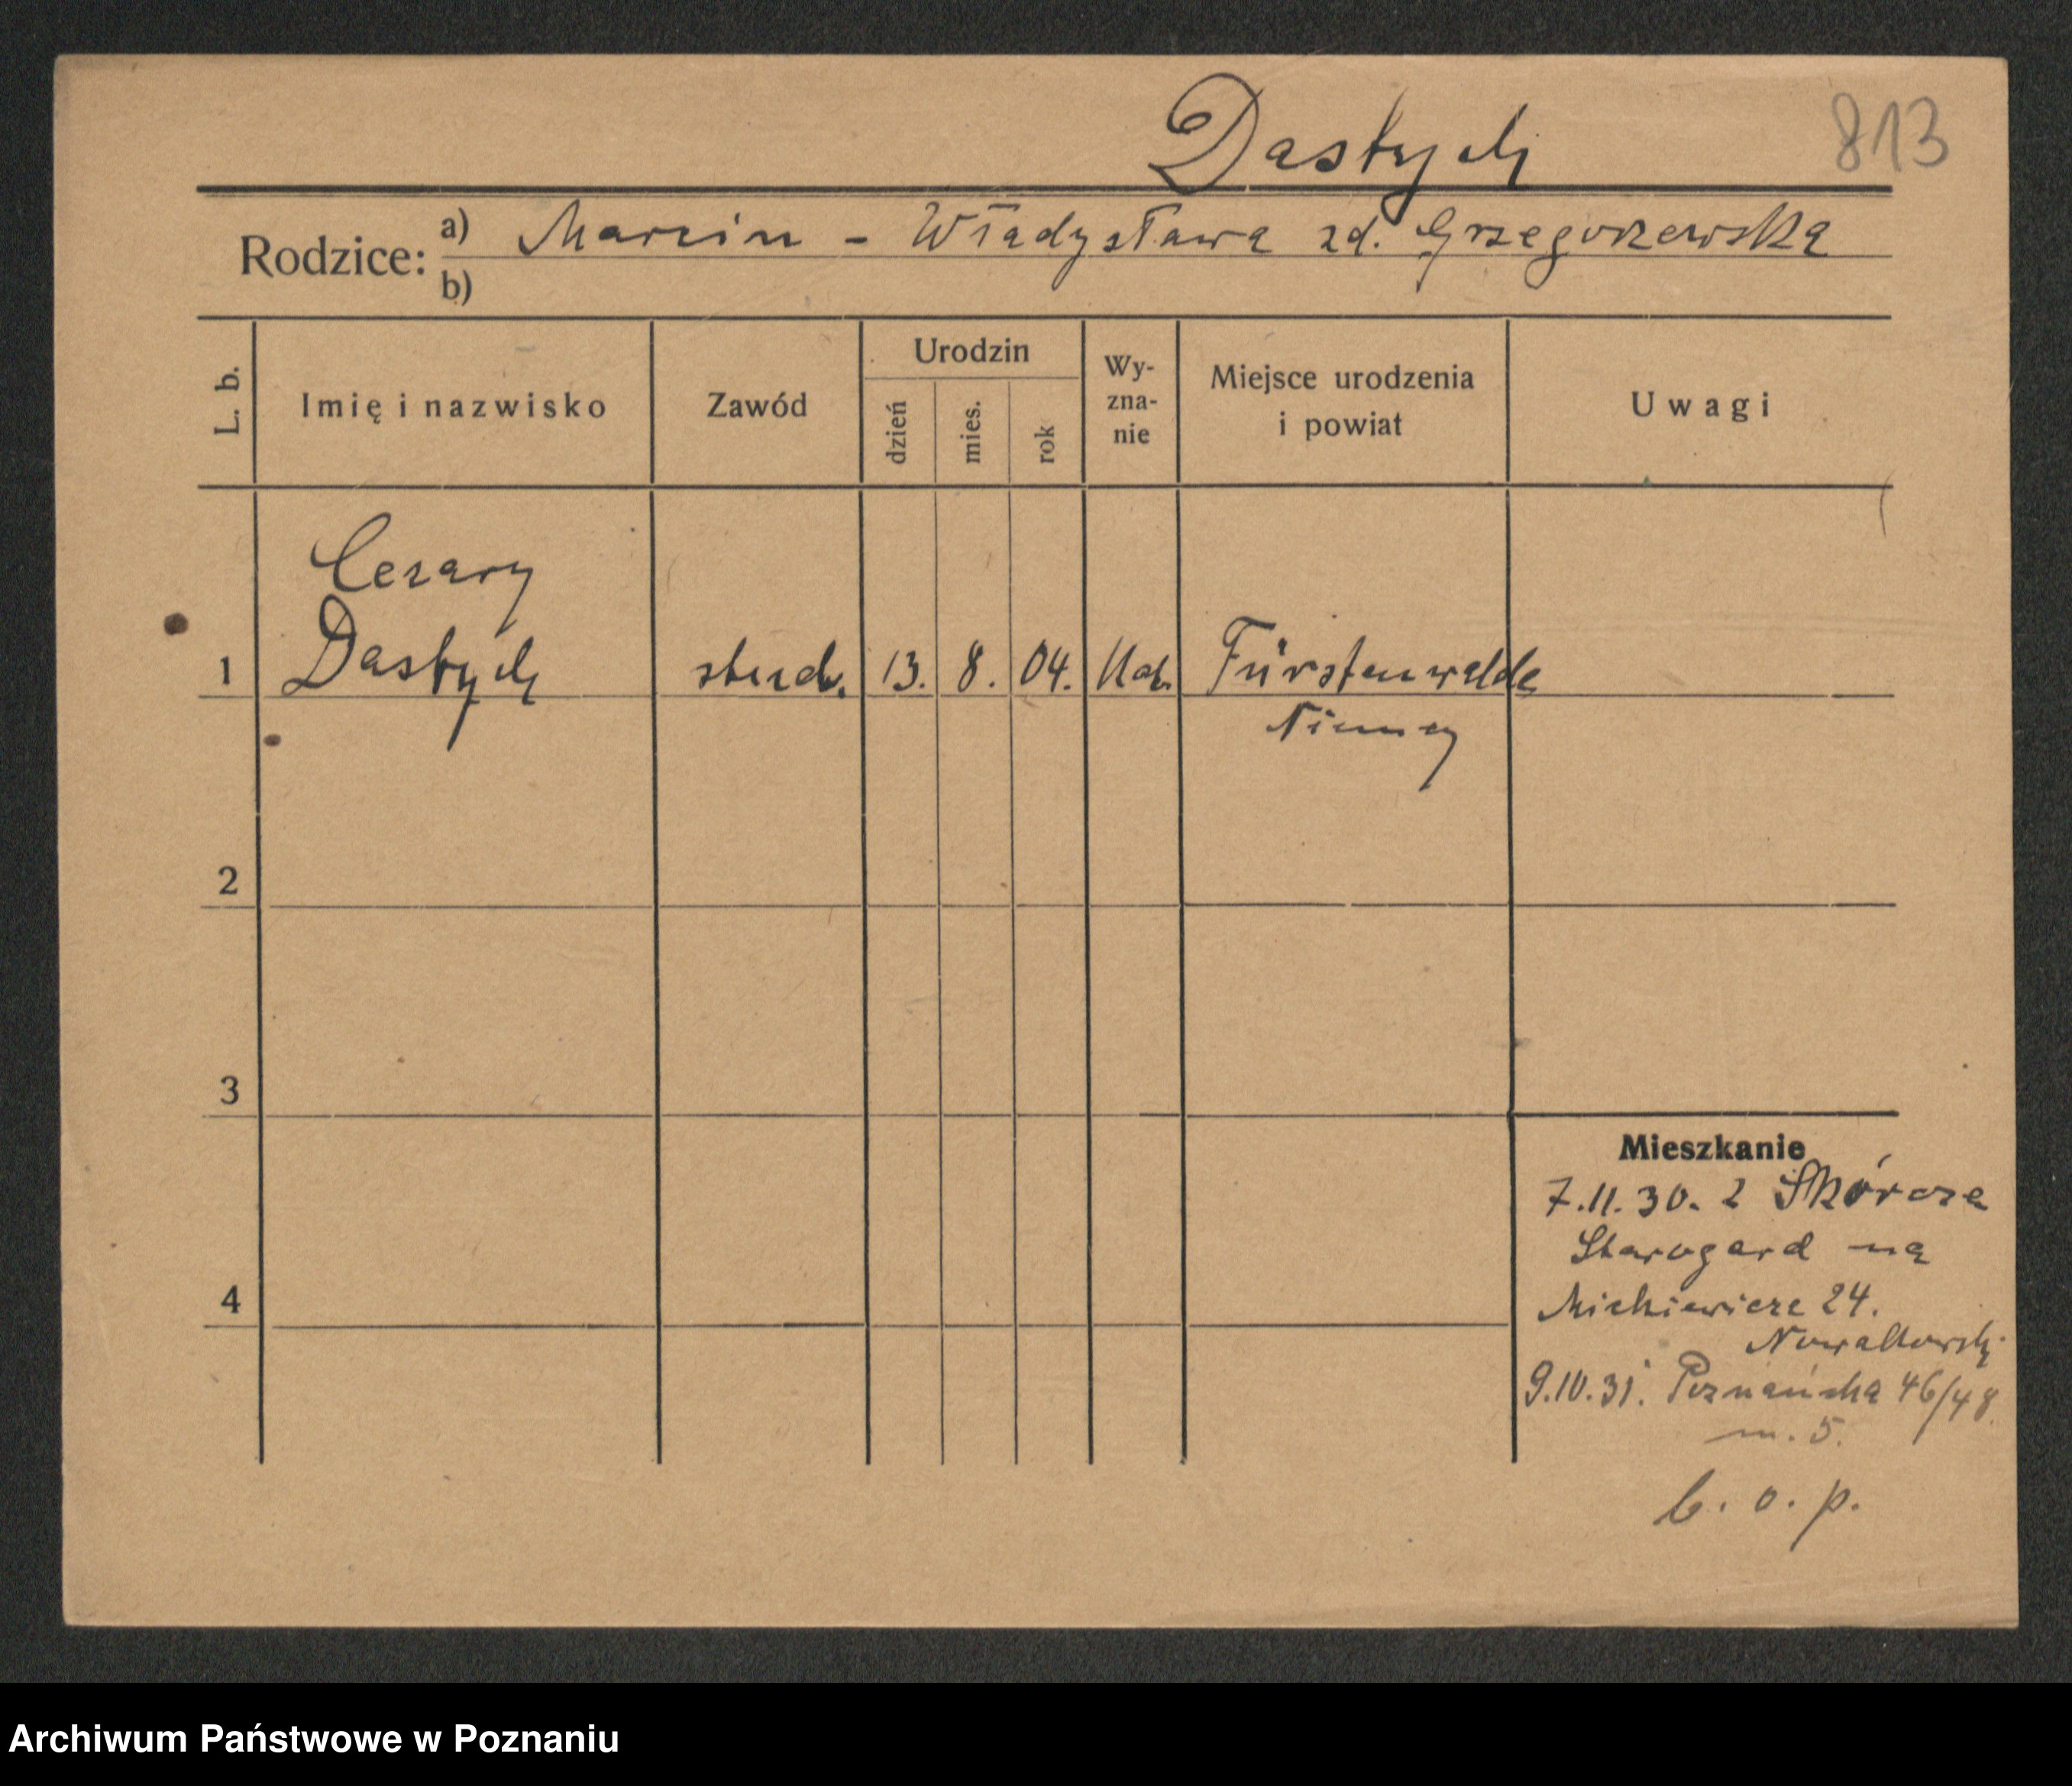 Dastych 813
Rodzice: a) Marcin - Władysława zd. Grzegorzewska
b)
L. b. Imię i nazwisko Zawód Urodzin dzień mies. rok Wy-zna-nie Miejsce urodzenia i powiat Uwagi
Cezary
1 Dastych stud. 13. 8. 04. kat. Fürstenwalde
Niemcy
2
3
Mieszkanie
7.11.30. z Skórcza
Starogard na
4 Mickiewicza 24.
9.10.31. Poznańska 46/48
m. 5.
b. o. p.
Archiwum Państwowe w Poznaniu